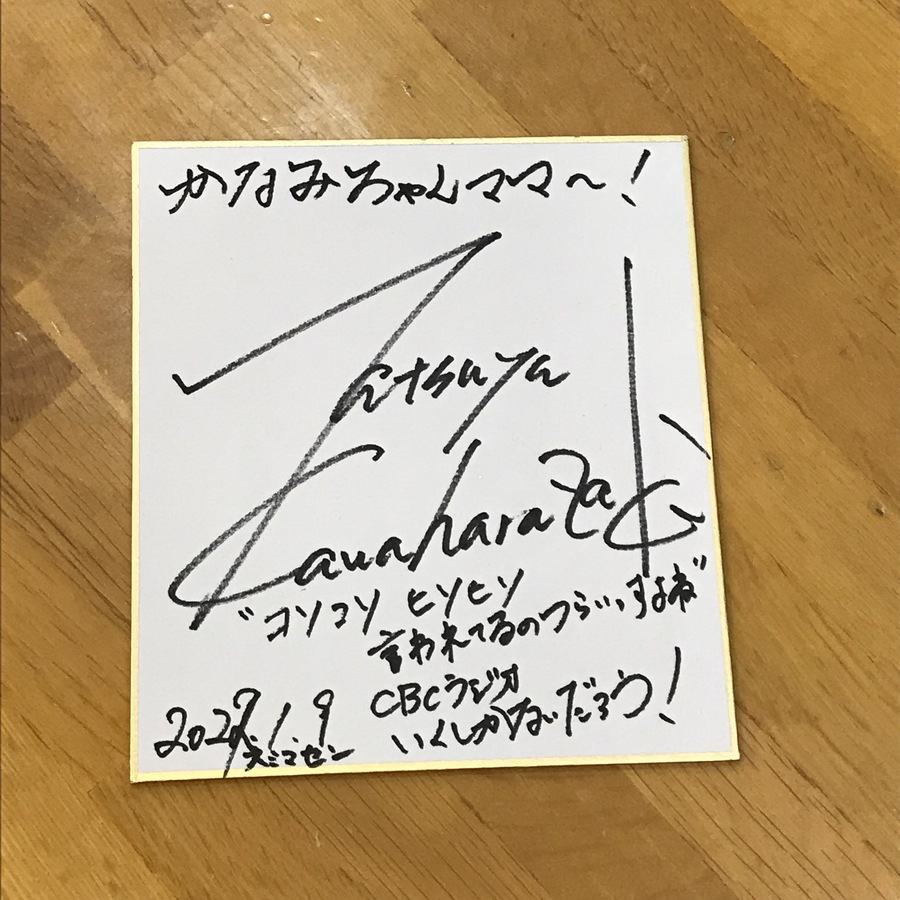 かなみちゃんママ〜!
Tatsuya
Kawaharazaki
"コソコソ ヒソヒソ
言われてるのつらいっすよね"
CBCラジオ
いくしかないだろう!
2027.1.9
スミマセン